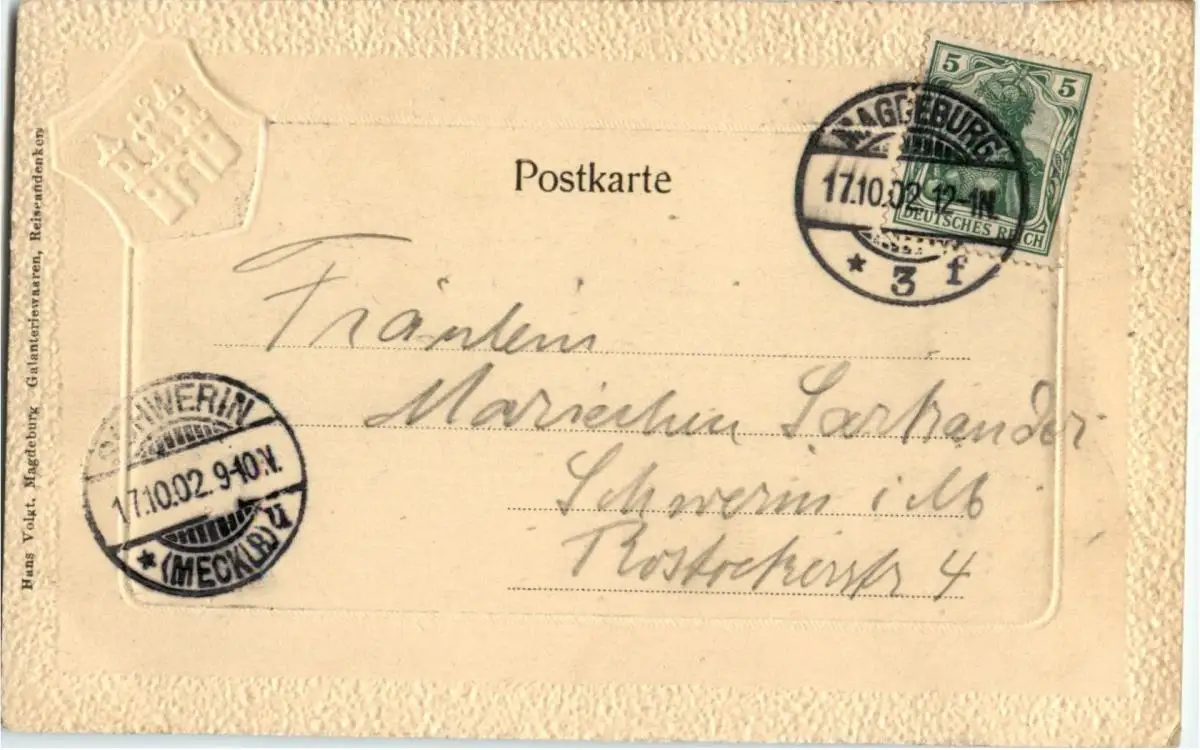 Postkarte
5 5
DEUTSCHES REICH
MAGDEBURG
17.10.02. 12-1N.
* 3 f
Fräulein
Mariechen
Schwerin i M
Rostockerstr 4
SCHWERIN
17.10.02. 9-10N.
* (MECKLB) ü
Hans Volgt, Magdeburg Galanteriewaaren, Reiseandenken